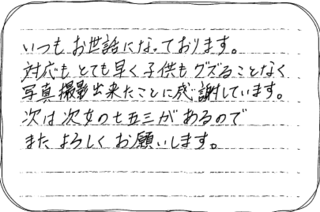 いつもお世話になっております。
対応もとても早く子供もグズることなく
写真撮影出来たことに感謝しています。
次は次女の七五三があるので
またよろしくお願いします。